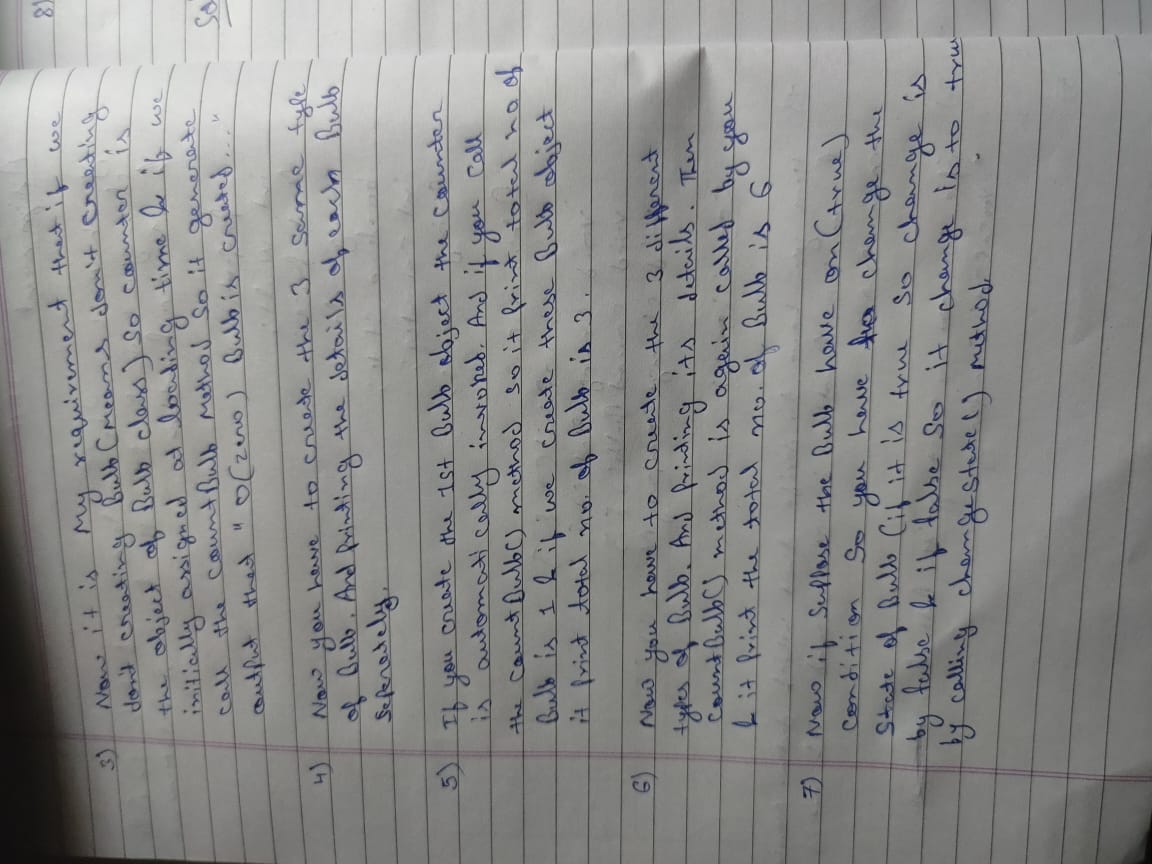 3) Now it is my requirement that if we
don't creating Bulb (means don't creating
the object of Bulb class) so counter is
initically assigned at loading time & if we
call the countBulb method so it generate
output that "0(zero) Bulb is created..."
4) Now you have to create the 3 same type
of Bulb. And printing the details of each Bulb
seperately.
5) If you create the 1st Bulb object the counter
is automatically invoked. And if you call
the countBulb() method so it print total no of
Bulb is 1 & if we create these Bulb object
it print total no. of Bulb is 3.
6) Now you have to create the 3 different
types of Bulb. And printing its details. Then
CountBulb() method is again called by you
& it print the total no. of Bulb is 6
7) Now if suppose the Bulb have on(true)
condition so you have to change the
state of Bulb (if it is true so change is
by false & if false so it change is to true
by calling changeState() method.
8)
Sol